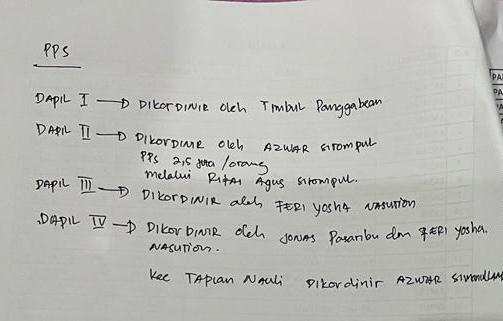 PPS
DAPIL I → DIKORDINIR oleh Timbul Panggabean
DAPIL II → DIKORDINIR oleh AZWAR sitompul
PPS 2,5 juta/orang
melalui Rifai Agus sitompul.
DAPIL III → DIKORDINIR oleh FERI yosha NASUTION
DAPIL IV → DIKORDINIR oleh JONAS Pasaribu dan FERI yosha.
NASUTION.
kec TAPIAN NAuli Dikordinir AZWAR
PA
PA
PA